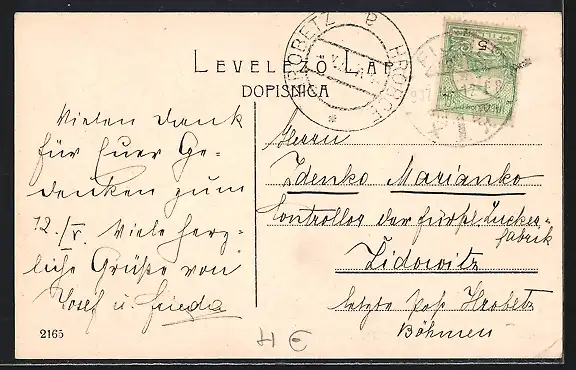 LEVELEZŐ LAP
DOPISNICA
HROBETZ HROBCE
5
Vielen Dank
für Euer Ge-
denken zum
12./V. Viele herz-
liche Grüße von
Josef u. Frieda
2165
Herrn
Zdenko Marianko
Controllor der fürstl. Zucker-
fabrik
Zidowitz
letzte Post Hrobetz
Böhmen
4 €